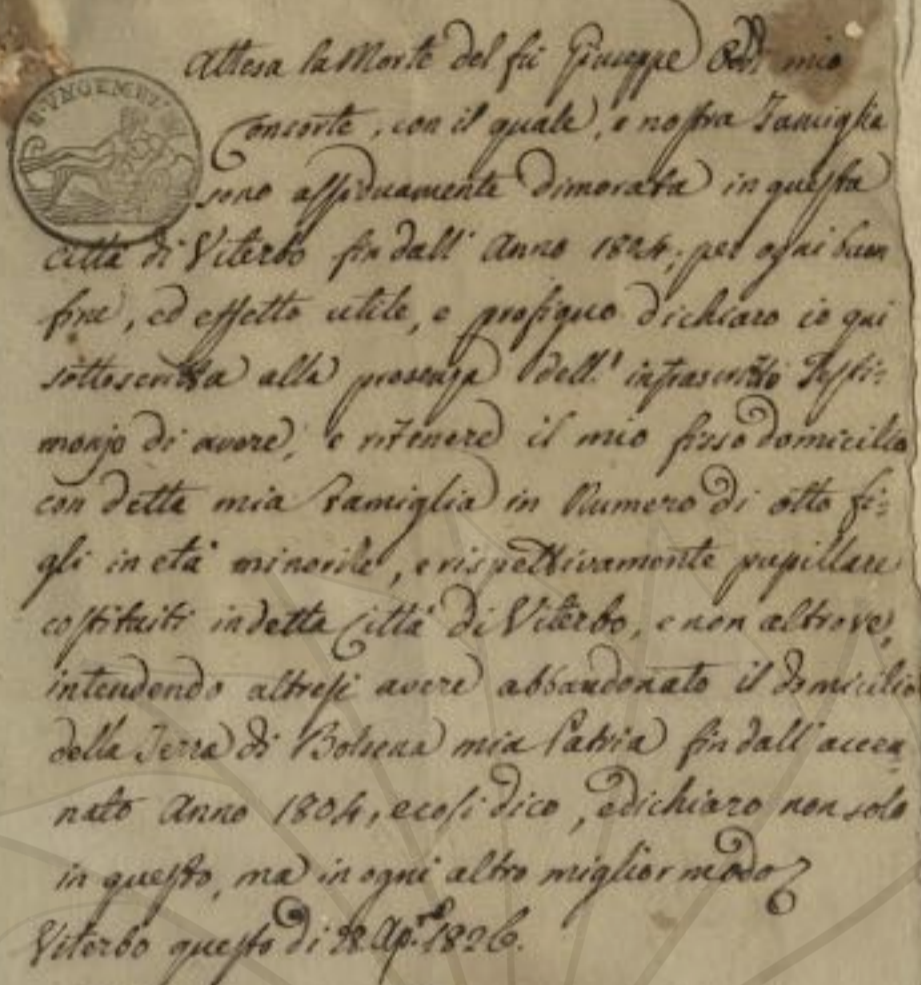 Attesa la Morte del fù Giuseppe mio
Consorte, con il quale, e nostra Famiglia
sono assiduamente dimorata in questa
città di Viterbo fin dall' Anno 1824; per ogni buon
fine, ed effetto utile, e profiquo dichiaro io qui
sottoscritta alla presenza dell.' infrascritto Testi=
monjo di avere, e ritenere il mio fisso domicilio
con detta mia Famiglia in Numero di otto fi=
gli in età minorile, e rispettivamente pupillare
costituiti in detta Città di Viterbo, e non altrove,
intendendo altresi avere abbandonato il domicilio
della Terra di Bolsena mia Patria fin dall' accen=
nato Anno 1804, e cosi dico, e dichiaro non solo
in questo, ma in ogni altro miglior modo
Viterbo questo di 28 Ap.le 1826.